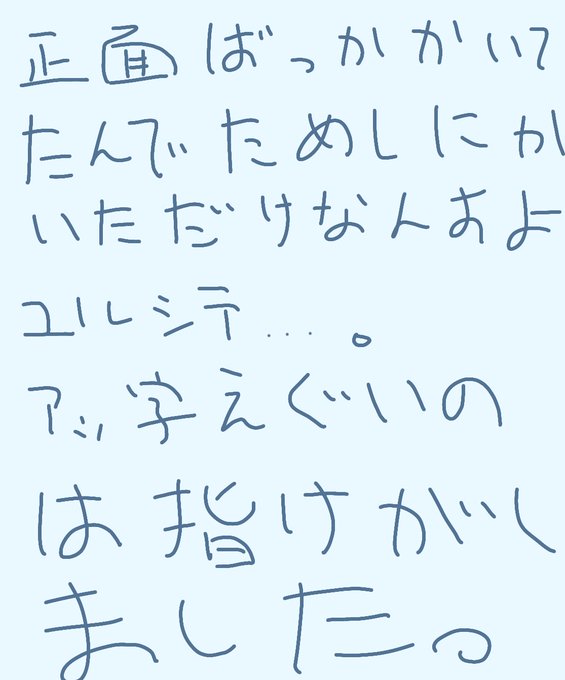 正面ばっかかいて
たんでためしにか
いただけなんすよ
ユルシテ...。
アッ字えぐいの
は指けがし
ました。